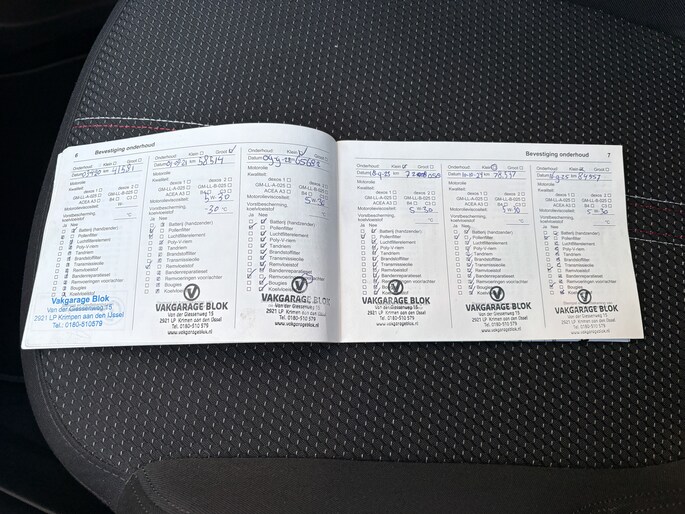 6 Bevestiging onderhoud
Onderhoud: Klein Groot
Datum km 41581
Motorolie
Kwaliteit:
dexos 1 dexos 2
GM-LL-A-025 GM-LL-B-025
ACEA A3 B4 C3
Motorolieviscositeit:
Voorbescherming,
koelvloeistof °C
Ja Nee
Batterij (handzender)
Pollenfilter
Luchtfilterelement
Poly-V-riem
Tandriem
Brandstoffilter
Transmissieolie
Remvloeistof
Bandenreparatieset
Remvoeringen voor/achter
Bougies
Koelvloeistof
Vakgarage Blok
Van der Giessenweg 15
2921 LP Krimpen aan den IJssel
Tel. 0180-510579
Onderhoud: Klein Groot
Datum km 58514
Motorolie
Kwaliteit:
dexos 1 dexos 2
GM-LL-A-025 GM-LL-B-025
ACEA A3 B4 C3
Motorolieviscositeit:
5W30
Voorbescherming,
koelvloeistof -30 °C
Ja Nee
Batterij (handzender)
Pollenfilter
Luchtfilterelement
Poly-V-riem
Tandriem
Brandstoffilter
Transmissieolie
Remvloeistof
Bandenreparatieset
Remvoeringen voor/achter
Bougies
Koelvloeistof
VAKGARAGE BLOK
Van der Giessenweg 15
2921 LP Krimen aan den IJssel
Tel. 0180-510 579
www.vakgarageblok.nl
Onderhoud: Klein Groot
Datum
Motorolie
Kwaliteit:
dexos 1 dexos 2
GM-LL-A-025 GM-LL-B-025
ACEA A3 B4 C3
Motorolieviscositeit:
5W30
Voorbescherming,
koelvloeistof °C
Ja Nee
Batterij (handzender)
Pollenfilter
Luchtfilterelement
Poly-V-riem
Tandriem
Brandstoffilter
Transmissieolie
Remvloeistof
Bandenreparatieset
Remvoeringen voor/achter
Bougies
Koelvloeistof
VAKGARAGE BLOK
Van der Giessenweg 15
2921 LP Krimen aan den IJssel
Tel. 0180-510 579
www.vakgarageblok.nl
Bevestiging onderhoud 7
Onderhoud: Klein Groot
Datum
Motorolie
Kwaliteit:
dexos 1 dexos 2
GM-LL-A-025 GM-LL-B-025
ACEA A3 B4 C3
Motorolieviscositeit:
5W-30
Voorbescherming,
koelvloeistof °C
Ja Nee
Batterij (handzender)
Pollenfilter
Luchtfilterelement
Poly-V-riem
Tandriem
Brandstoffilter
Transmissieolie
Remvloeistof
Bandenreparatieset
Remvoeringen voor/achter
Bougies
VAKGARAGE BLOK
Van der Giessenweg 15
2921 LP Krimen aan den IJssel
Tel. 0180-510 579
www.vakgarageblok.nl
Onderhoud: Klein Groot
Datum km 78337
Motorolie
Kwaliteit:
dexos 1 dexos 2
GM-LL-A-025 GM-LL-B-025
ACEA A3 B4 C3
Motorolieviscositeit:
Voorbescherming,
koelvloeistof °C
Ja Nee
Batterij (handzender)
Pollenfilter
Luchtfilterelement
Poly-V-riem
Tandriem
Brandstoffilter
Transmissieolie
Remvloeistof
Bandenreparatieset
Remvoeringen voor/achter
Bougies
VAKGARAGE BLOK
Van der Giessenweg 15
2921 LP Krimen aan den IJssel
Tel. 0180-510 579
www.vakgarageblok.nl
Onderhoud: Klein Groot
Datum km 84957
Motorolie
Kwaliteit:
dexos 1 dexos 2
GM-LL-A-025 GM-LL-B-025
ACEA A3 B4 C3
Motorolieviscositeit:
5W-30
Voorbescherming,
koelvloeistof °C
Ja Nee
Batterij (handzender)
Pollenfilter
Luchtfilterelement
Poly-V-riem
Tandriem
Brandstoffilter
Transmissieolie
Remvloeistof
Bandenreparatieset
Remvoeringen voor/achter
Bougies
VAKGARAGE BLOK
Van der Giessenweg 15
2921 LP Krimen aan den IJssel
Tel. 0180-510 579
www.vakgarageblok.nl